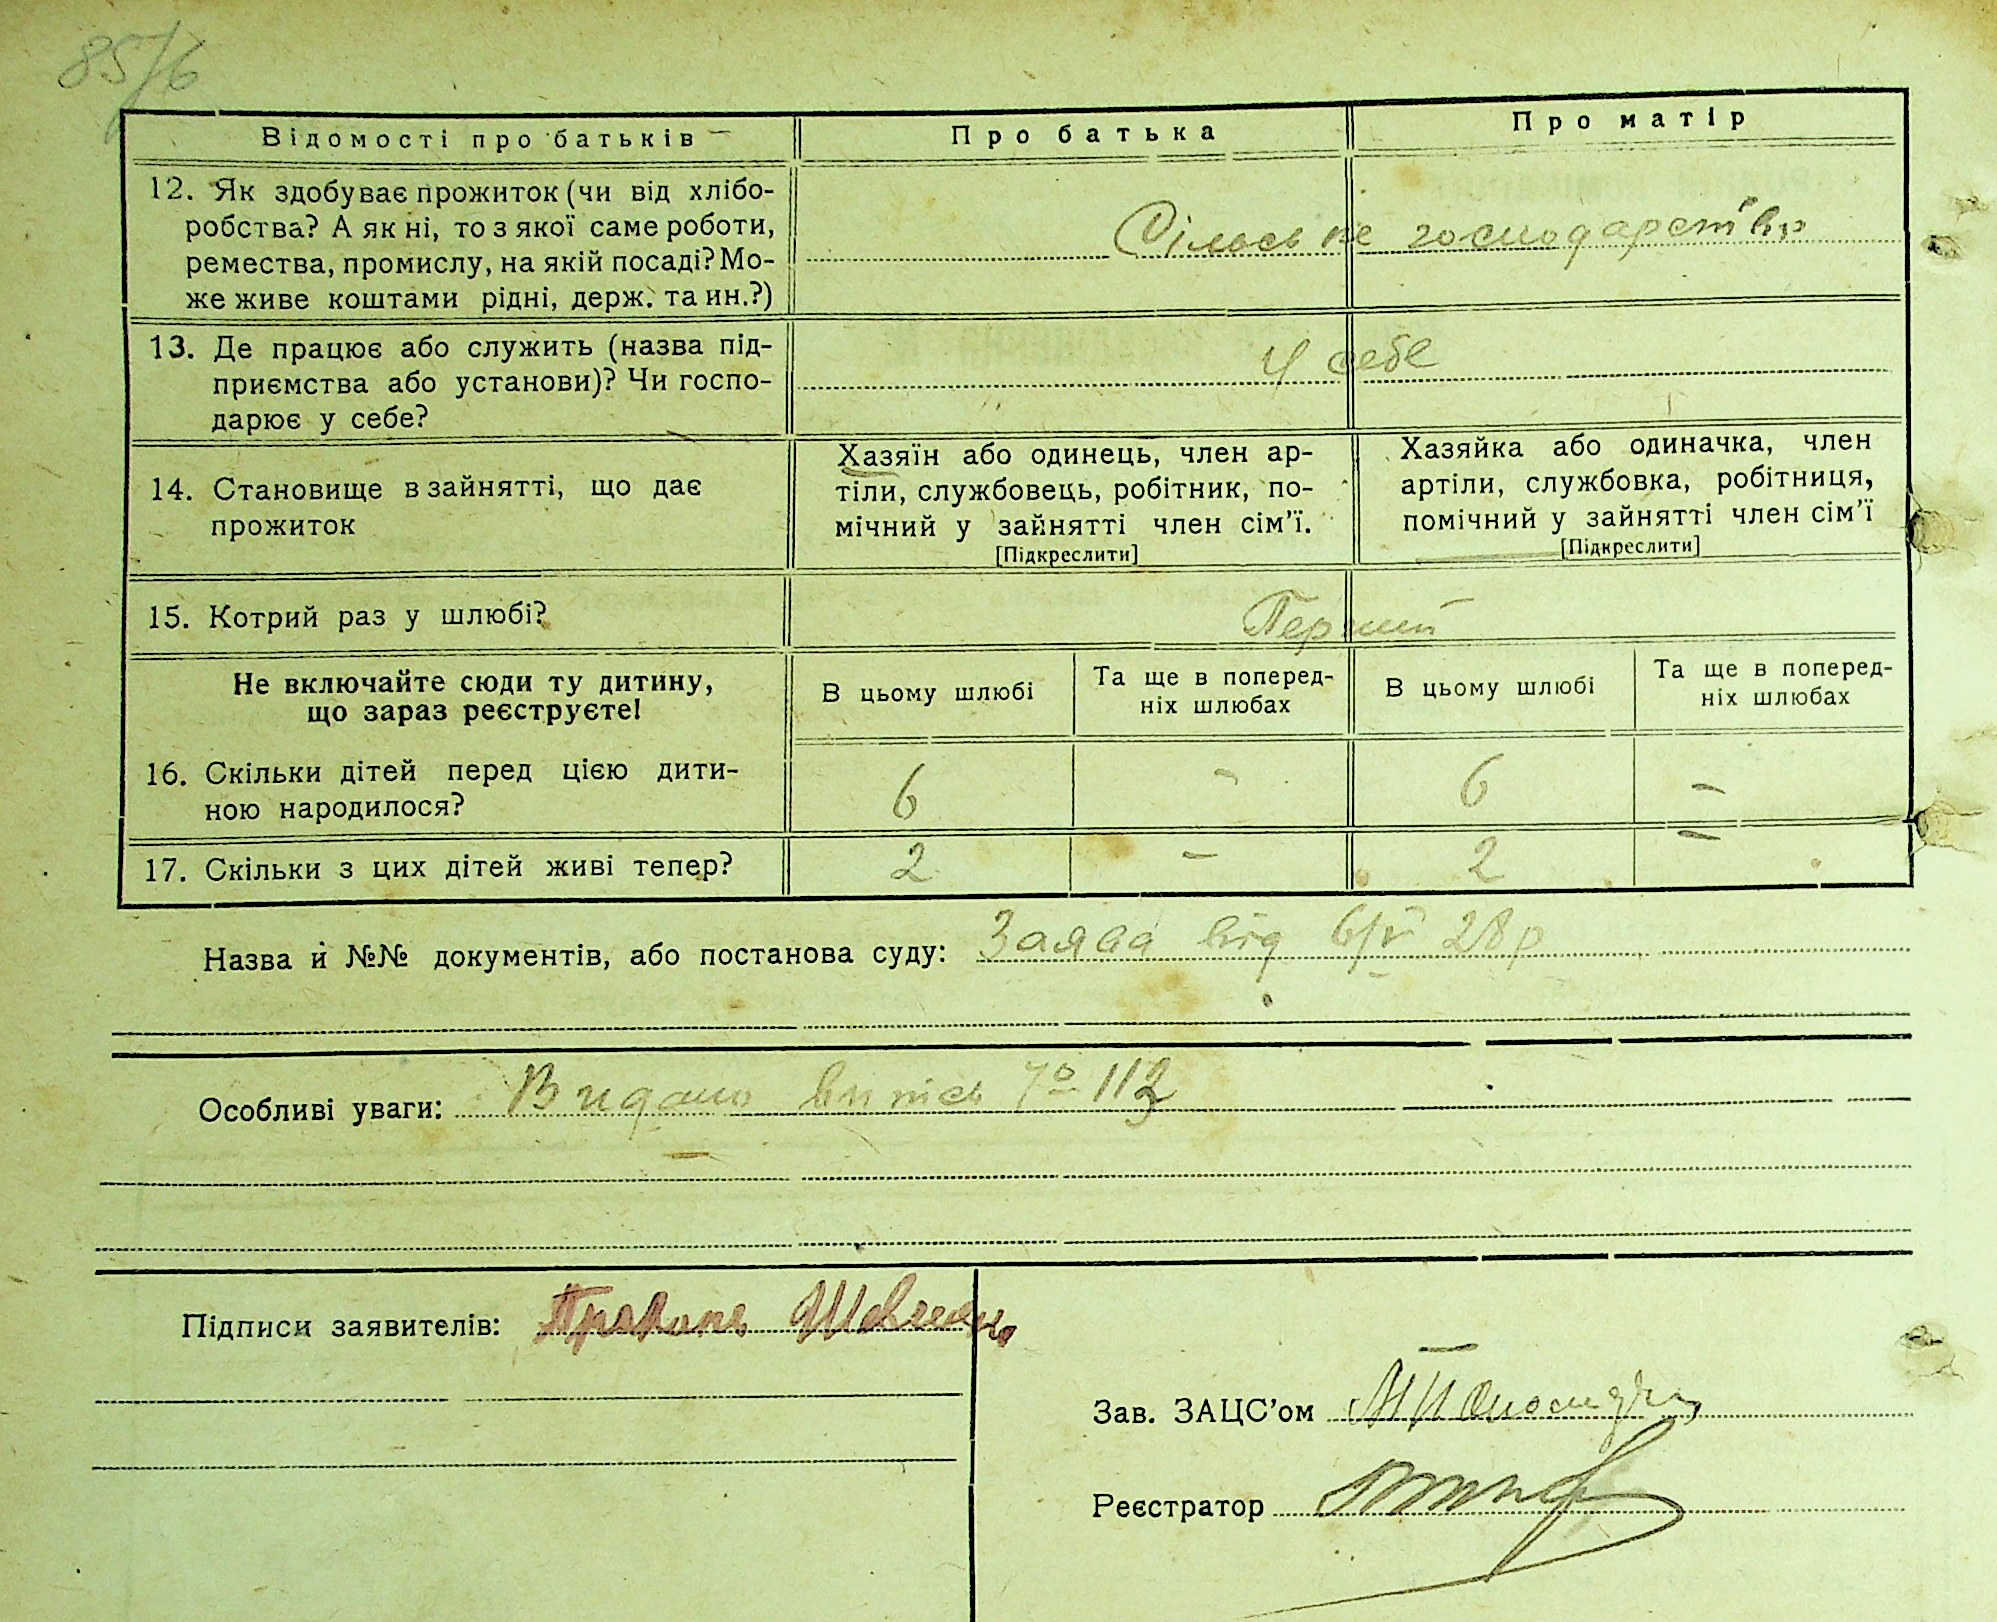 85/6
Відомості про батьків
Про батька
Про матір
12. Як здобуває прожиток (чи від хлібо-
робства? А як ні, то з якої саме роботи,
ремества, промислу, на якій посаді? Мо-
же живе коштами рідні, держ. та ин.?)
Сільське господарство
13. Де працює або служить (назва під-
приємства або установи)? Чи госпо-
дарює у себе?
У себе
14. Становище в зайнятті, що дає
прожиток
Хазяїн або одинець, член ар-
тіли, службовець, робітник, по-
мічний у зайнятті член сім'ї.
[Підкреслити]
Хазяйка або одиначка, член
артіли, службовка, робітниця,
помічний у зайнятті член сім'ї
[Підкреслити]
15. Котрий раз у шлюбі?
Перший
Не включайте сюди ту дитину,
що зараз реєструєте!
В цьому шлюбі
Та ще в поперед-
ніх шлюбах
В цьому шлюбі
Та ще в поперед-
ніх шлюбах
16. Скільки дітей перед цією дити-
ною народилося?
6 - 6 -
17. Скільки з цих дітей живі тепер?
2 - 2 -
Назва й №№ документів, або постанова суду: Заява від 6/V 28 р
Особливі уваги: Видано випись № 113
Підписи заявителів: Прокопь Шевченко
Зав. ЗАЦС'ом
Реєстратор